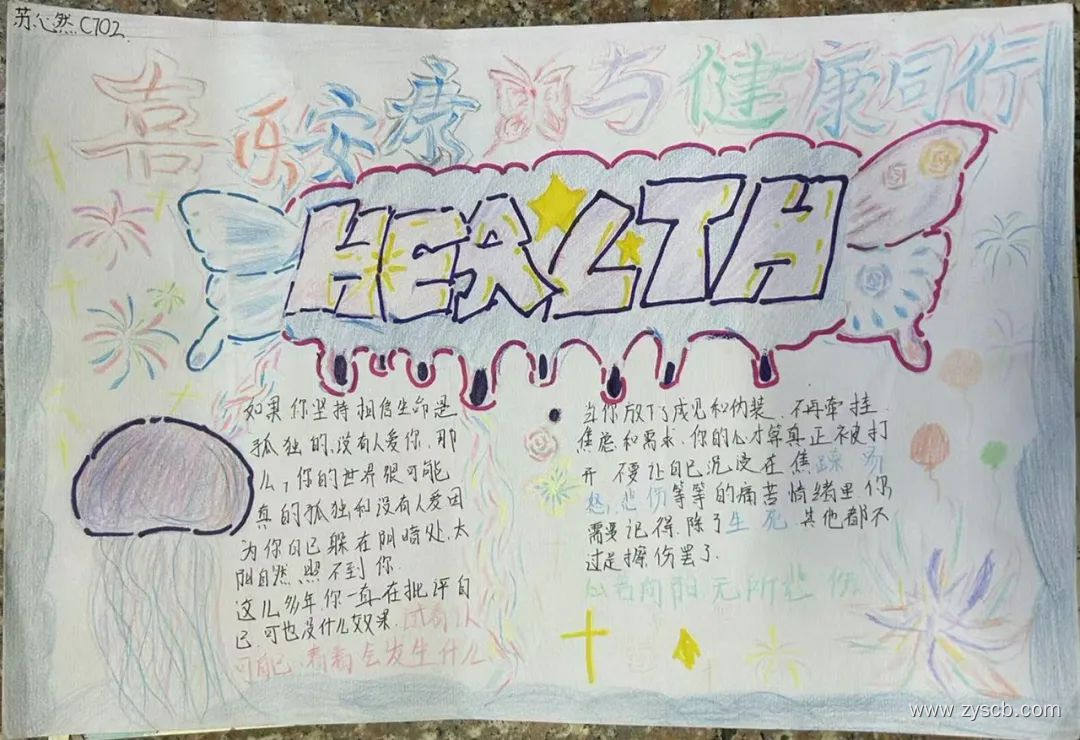 苏心然C702
喜乐安康 与健康同行
HEALTH
如果你坚持相信生命是
孤独的,没有人爱你.那
么,你的世界很可能
真的孤独和没有人爱因
为你自己躲在阴暗处.太
阳自然照不到你.
这么多年你一直在批评自
己可也没什么效果.试着认
可自己.看看会发生什么
当你放下了成见和伪装.不再牵挂.
焦虑和需求.你的心才算真正被打
开.不要让自己沉浸在焦躁
愁,悲伤等等的痛苦情绪里你
需要记得.除了生死.其他都不
过是擦伤罢了.
心若向阳.无所悲伤
www.zyscb.com